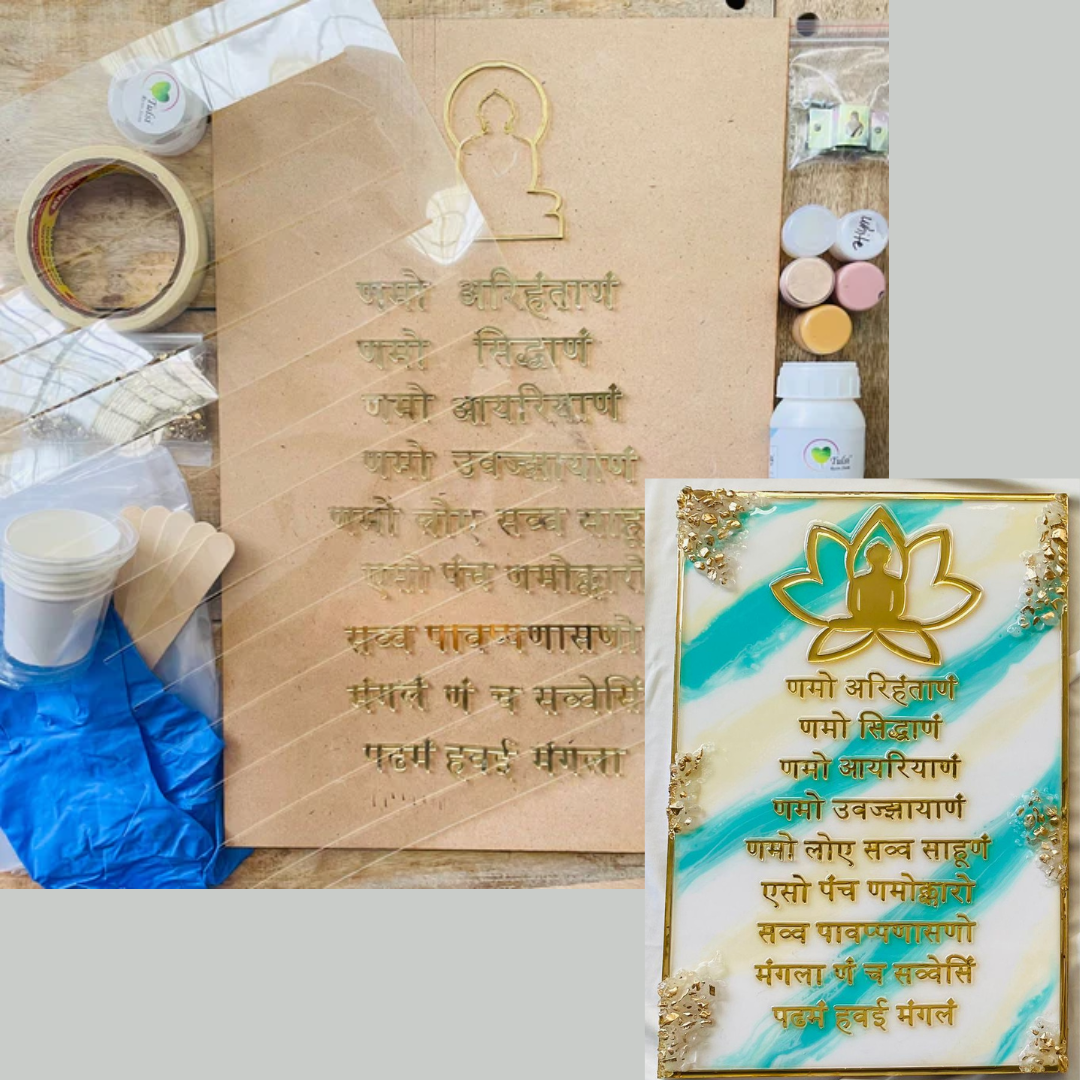 Tulsi
White
Tulsi
णमो अरिहंताणं
णमो सिद्धाणं
णमो आयरियाणं
णमो उवज्झायाणं
णमो लोए सव्व साहू
एसो पंच णमोक्कारो
सव्व पावप्पणासणो
मंगलं णं च सव्वेसिं
पढमं हवई मंगला
णमो अरिहंताणं
णमो सिद्धाणं
णमो आयरियाणं
णमो उवज्झायाणं
णमो लोए सव्व साहूणं
एसो पंच णमोक्कारो
सव्व पावप्पणासणो
मंगला णं च सव्वेसिं
पढमं हवई मंगलं